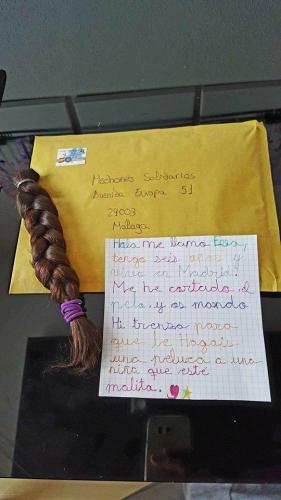 Mechones Solidarios
Avenida Europa 51
29003
Málaga
Hola me llamo
tengo seis años y
vivo en Madrid.
Me he cortado el
pelo, y os mando
Mi trenza para
que le Hagais
una peluca a una
niña que esté
malita.